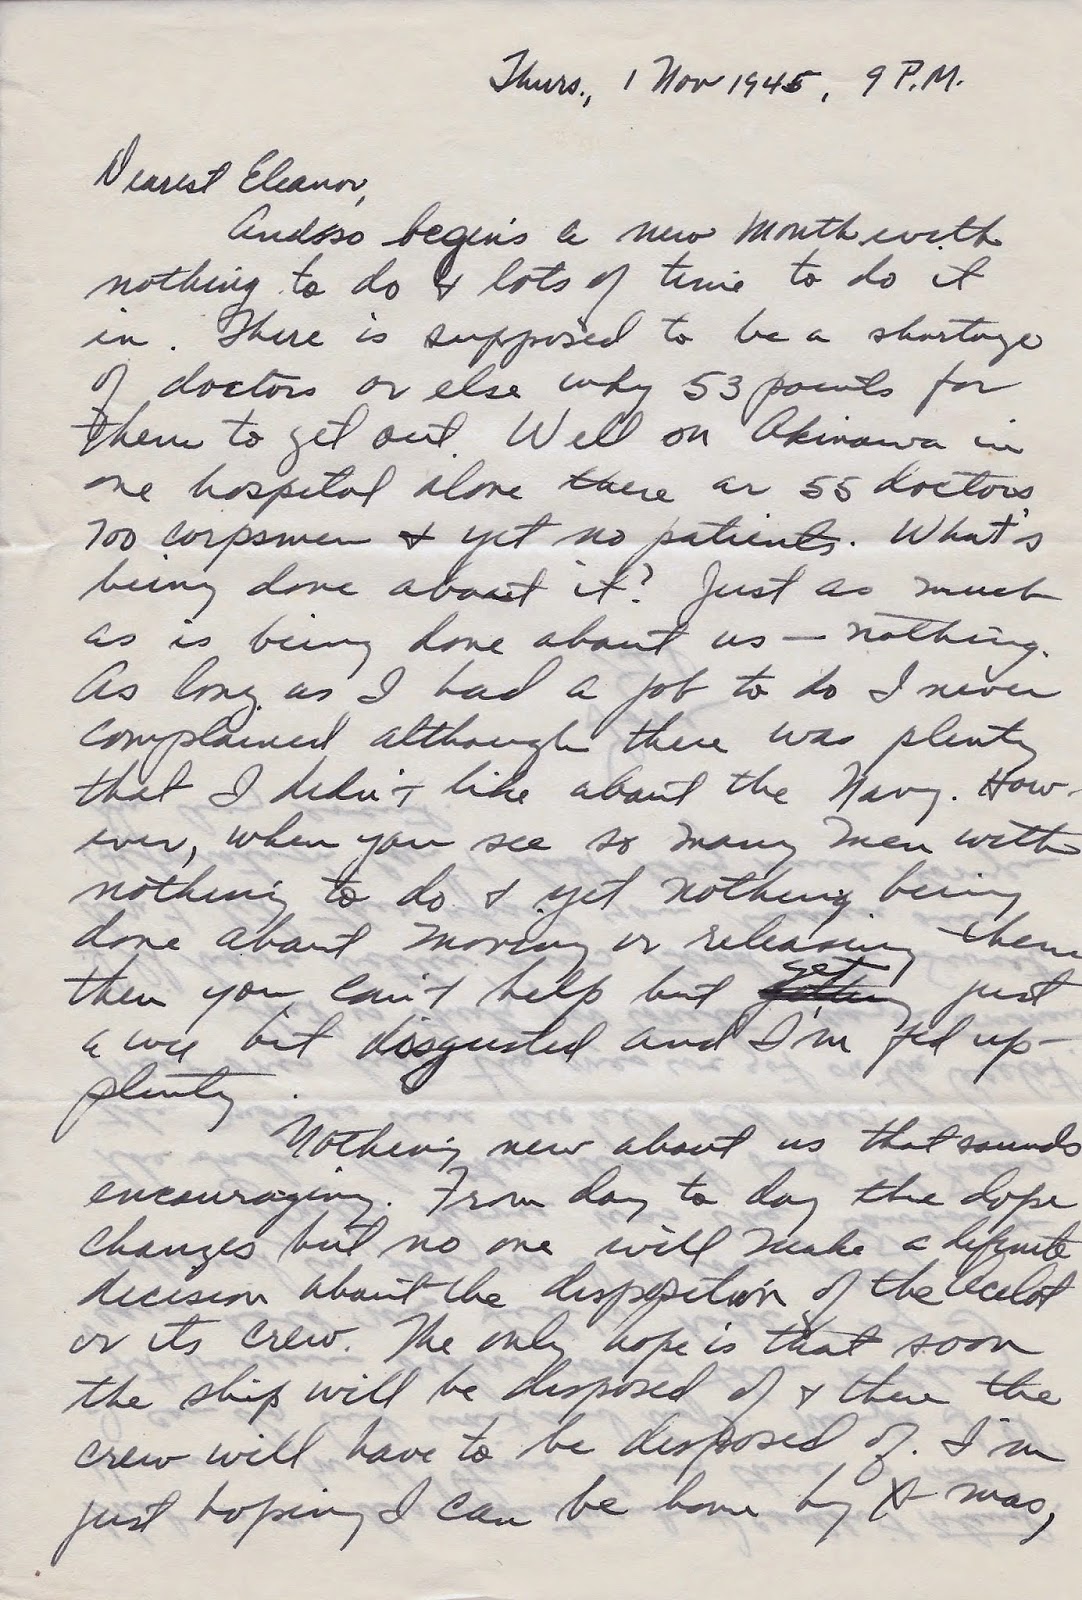 Thurs., 1 Nov 1945, 9 P.M.
Dearest Eleanor,
And so begins a new month with
nothing to do & lots of time to do it
in. There is supposed to be a shortage
of doctors or else why 53 points for
them to get out. Well on Okinawa in
one hospital alone there ar 55 doctors
700 corpsmen & yet no patients. What's
being done about it? Just as much
as is being done about us — nothing.
As long as I had a job to do I never
complained although there was plenty
that I didn't like about the Navy. How-
ever, when you see so many men with
nothing to do & yet nothing being
done about moving or releasing them
then you can't help but get just
a wee bit disgusted and I'm fed up —
plenty.
Nothing new about us that sounds
encouraging. From day to day the dope
changes but no one will make a definite
decision about the disposition of the Ocelot
or its crew. The only hope is that soon
the ship will be disposed of & then the
crew will have to be disposed of. I'm
just hoping I can be home by Xmas,